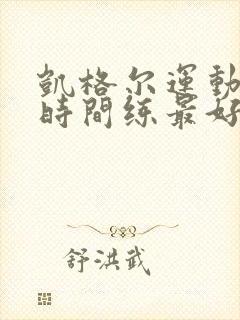 凱格尔運動
時間练最好
舒洪武